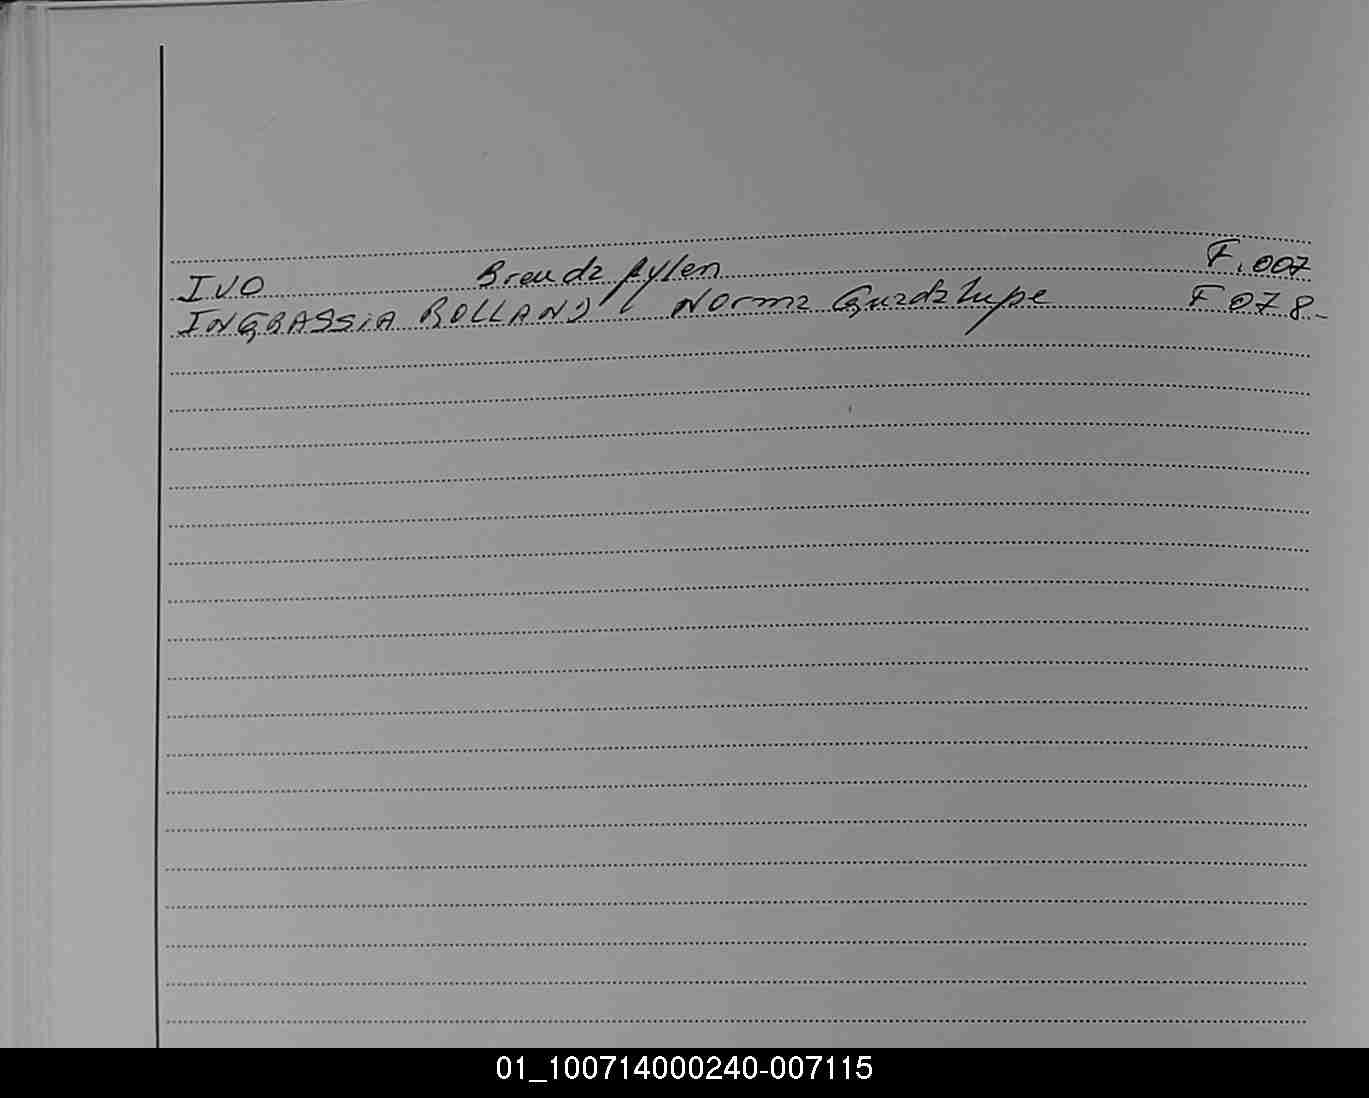 IVO Brenda Aylen F. 007
INGRASSIA ROLLANDI Norma Guadalupe F 078-
01_100714000240-007115